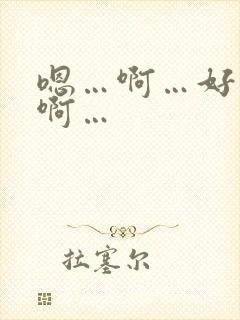 嗯…啊…好
啊…
拉塞尔